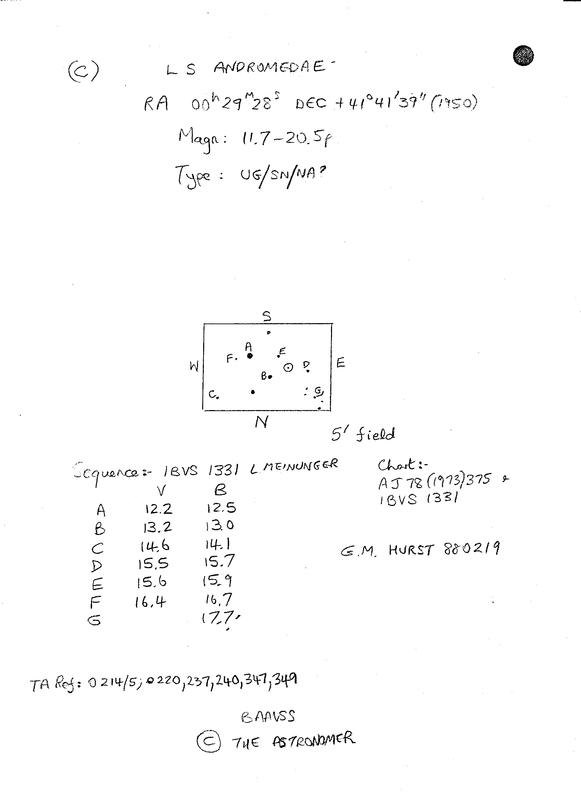 (C) LS ANDROMEDAE
RA 00h29m28s DEC +41°41'39" (1950)
Magn: 11.7-20.5p
Type: UG/SN/NA?
S
A
F E
W B D E
C G
N
5' field
Sequence:- IBVS 1331 L MEINUNGER
V B
A 12.2 12.5
B 13.2 13.0
C 14.6 14.1
D 15.5 15.7
E 15.6 15.9
F 16.4 16.7
G 17.7
Chart:-
AJ 78 (1973) 375 &
IBVS 1331
G.M. HURST 880219
TA Ref: 0214/5; 0220,237,240,347,349
BAAVSS
© THE ASTRONOMER